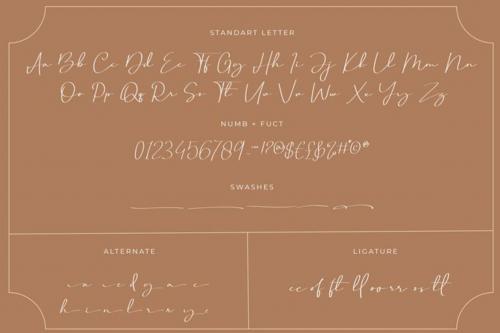 STANDART LETTER
Aa Bb Cc Dd Ee Ff Gg Hh Ii Jj Kk Ll Mm Nn
Oo Pp Qq Rr Ss Tt Uu Vv Ww Xx Yy Zz
NUMB + FUCT
0123456789
SWASHES
ALTERNATE
LIGATURE
a c e d g a c
h i n l r x y e
cc of ft ll oo rr os tt